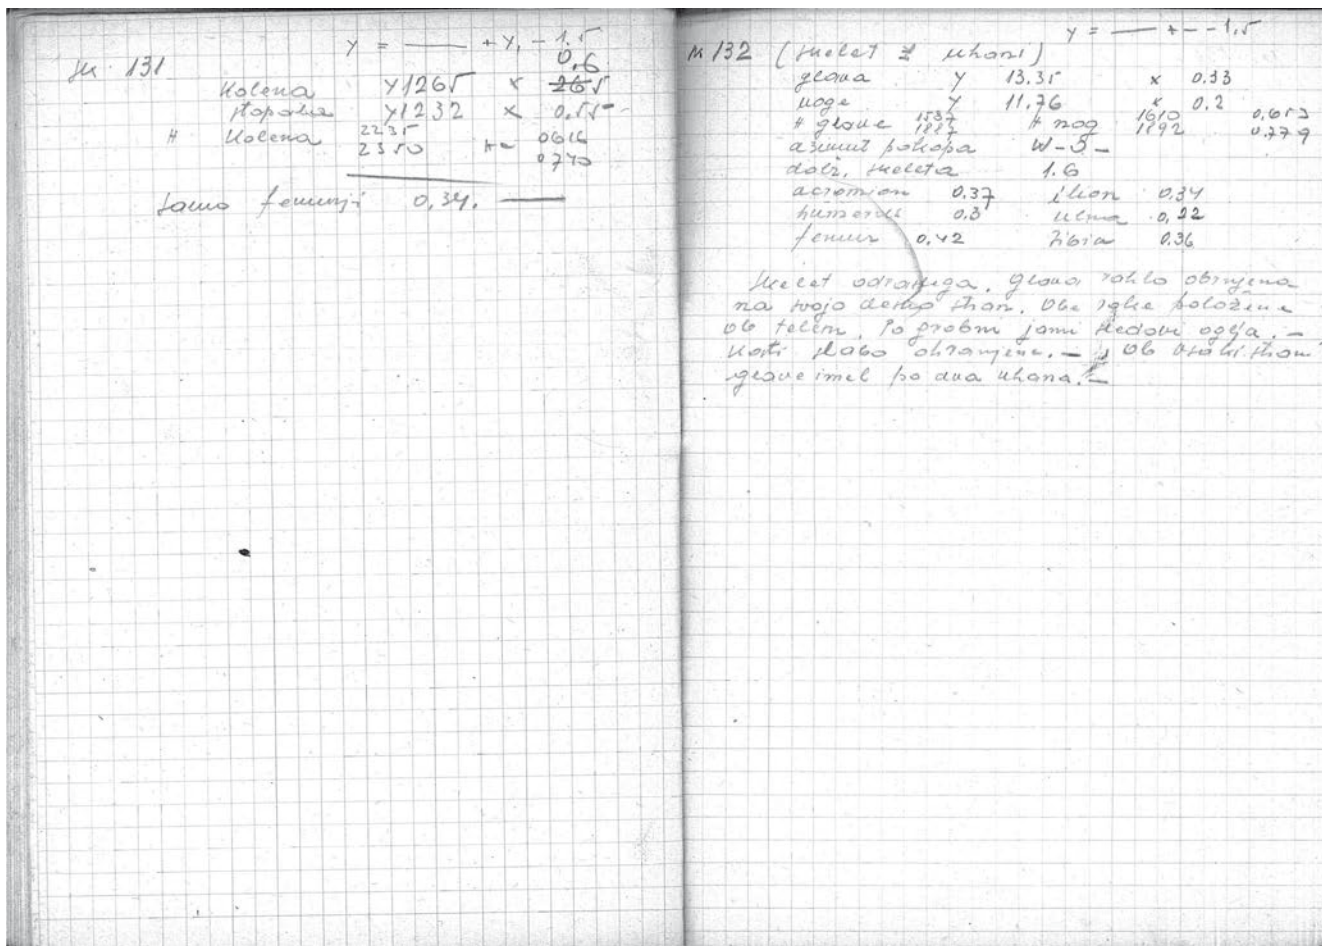 y = — + y, - 1.5
sk. 131 0,6
Kolena y 1265 x 265
stopala y 1232 x 0,55
# Kolena 2235 0616
2350 0740
samo femurji 0,34. —
y = — + - - 1,5
sk 132 (skelet z uhani)
glava y 13.35 x 0.33
noge y 11.76 x 0.2
# glave 1537 # nog 1610 0,653
1887 1892 0.779
azimut pokopa W-O-
dolž. skeleta 1.6
acromion 0.37 ilion 0,34
humerus 0.3 ulna 0,22
femur 0,42 tibia 0.36
Skelet odraslega. Glava rahlo obrnjena
na svojo desno stran. Obe roke položene
ob telem. Po grobni jami sledovi oglja. —
Kosti slabo ohranjene. — Ob vsaki strani
glave imel po dva uhana. —